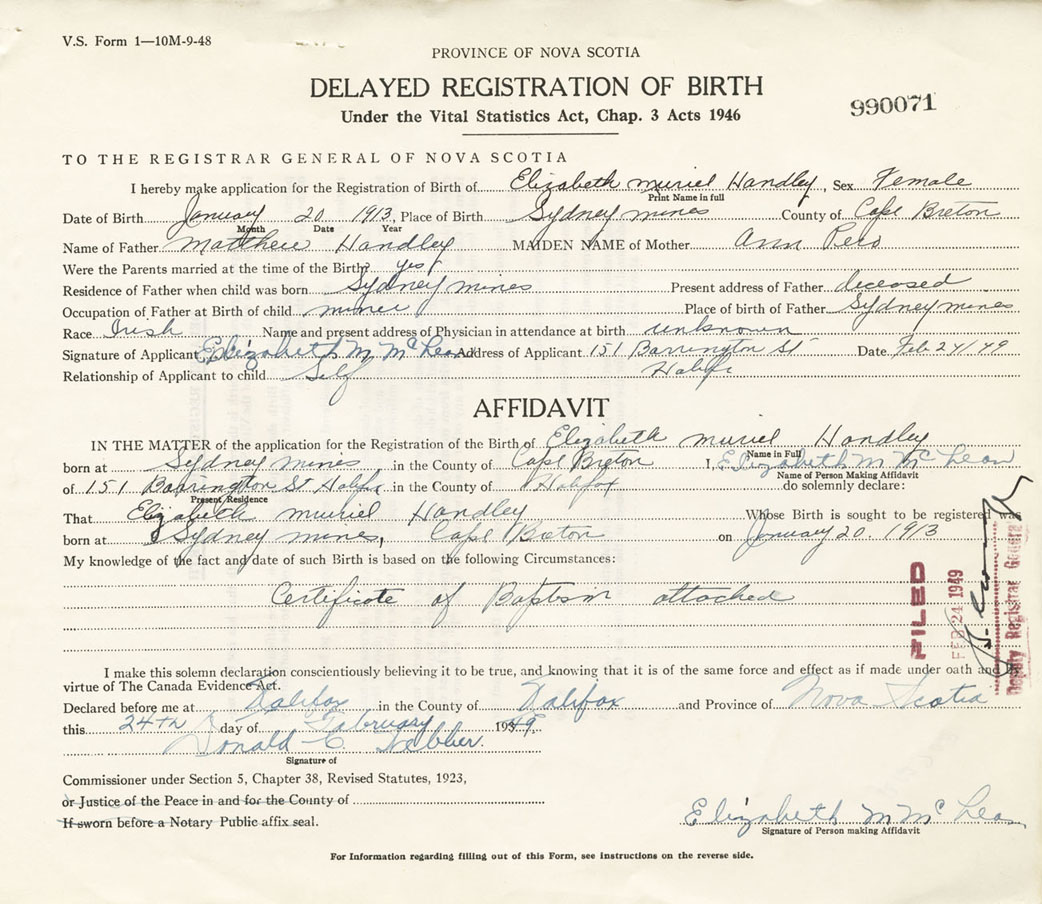 V.S. Form 1—10M-9-48
PROVINCE OF NOVA SCOTIA
DELAYED REGISTRATION OF BIRTH
Under the Vital Statistics Act, Chap. 3 Acts 1946
990071
TO THE REGISTRAR GENERAL OF NOVA SCOTIA
I hereby make application for the Registration of Birth of Elizabeth Muriel Handley, Sex Female
Print Name in full
Date of Birth January 20 1913, Place of Birth Sydney Mines County of Cape Breton
Month Date Year
Name of Father Matthew Handley MAIDEN NAME of Mother Ann Pero
Were the Parents married at the time of the Birth? yes
Residence of Father when child was born Sydney Mines Present address of Father deceased
Occupation of Father at Birth of child miner Place of birth of Father Sydney Mines
Race Irish Name and present address of Physician in attendance at birth unknown
Signature of Applicant Elizabeth M McLean Address of Applicant 151 Barrington St Date Feb 24/49
Relationship of Applicant to child Self Halifx
AFFIDAVIT
IN THE MATTER of the application for the Registration of the Birth of Elizabeth Muriel Handley
Name in Full
born at Sydney Mines, in the County of Cape Breton I, Elizabeth M McLean
Name of Person Making Affidavit
of 151 Barrington St Halifax in the County of Halifax do solemnly declare:
Present Residence
That Elizabeth Muriel Handley Whose Birth is sought to be registered was
born at Sydney Mines, Cape Breton on January 20. 1913
My knowledge of the fact and date of such Birth is based on the following Circumstances:
Certificate of Baptism attached
FILED
FEB 24 1949
Deputy Registrar General
I make this solemn declaration conscientiously believing it to be true, and knowing that it is of the same force and effect as if made under oath and
virtue of The Canada Evidence Act.
Declared before me at Halifax in the County of Halifax and Province of Nova Scotia
this 24th day of February 1949.
Donald C. Webber.
Signature of
Commissioner under Section 5, Chapter 38, Revised Statutes, 1923,
or Justice of the Peace in and for the County of
If sworn before a Notary Public affix seal.
Elizabeth M McLean
Signature of Person making Affidavit
For Information regarding filling out of this Form, see instructions on the reverse side.